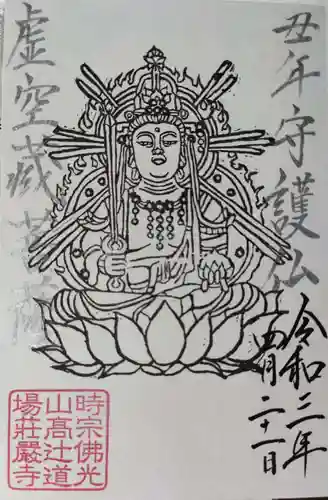 丑年守護仏
虚空蔵菩薩
令和三年
四月二十一日
時宗佛光
山高辻道
場荘嚴寺